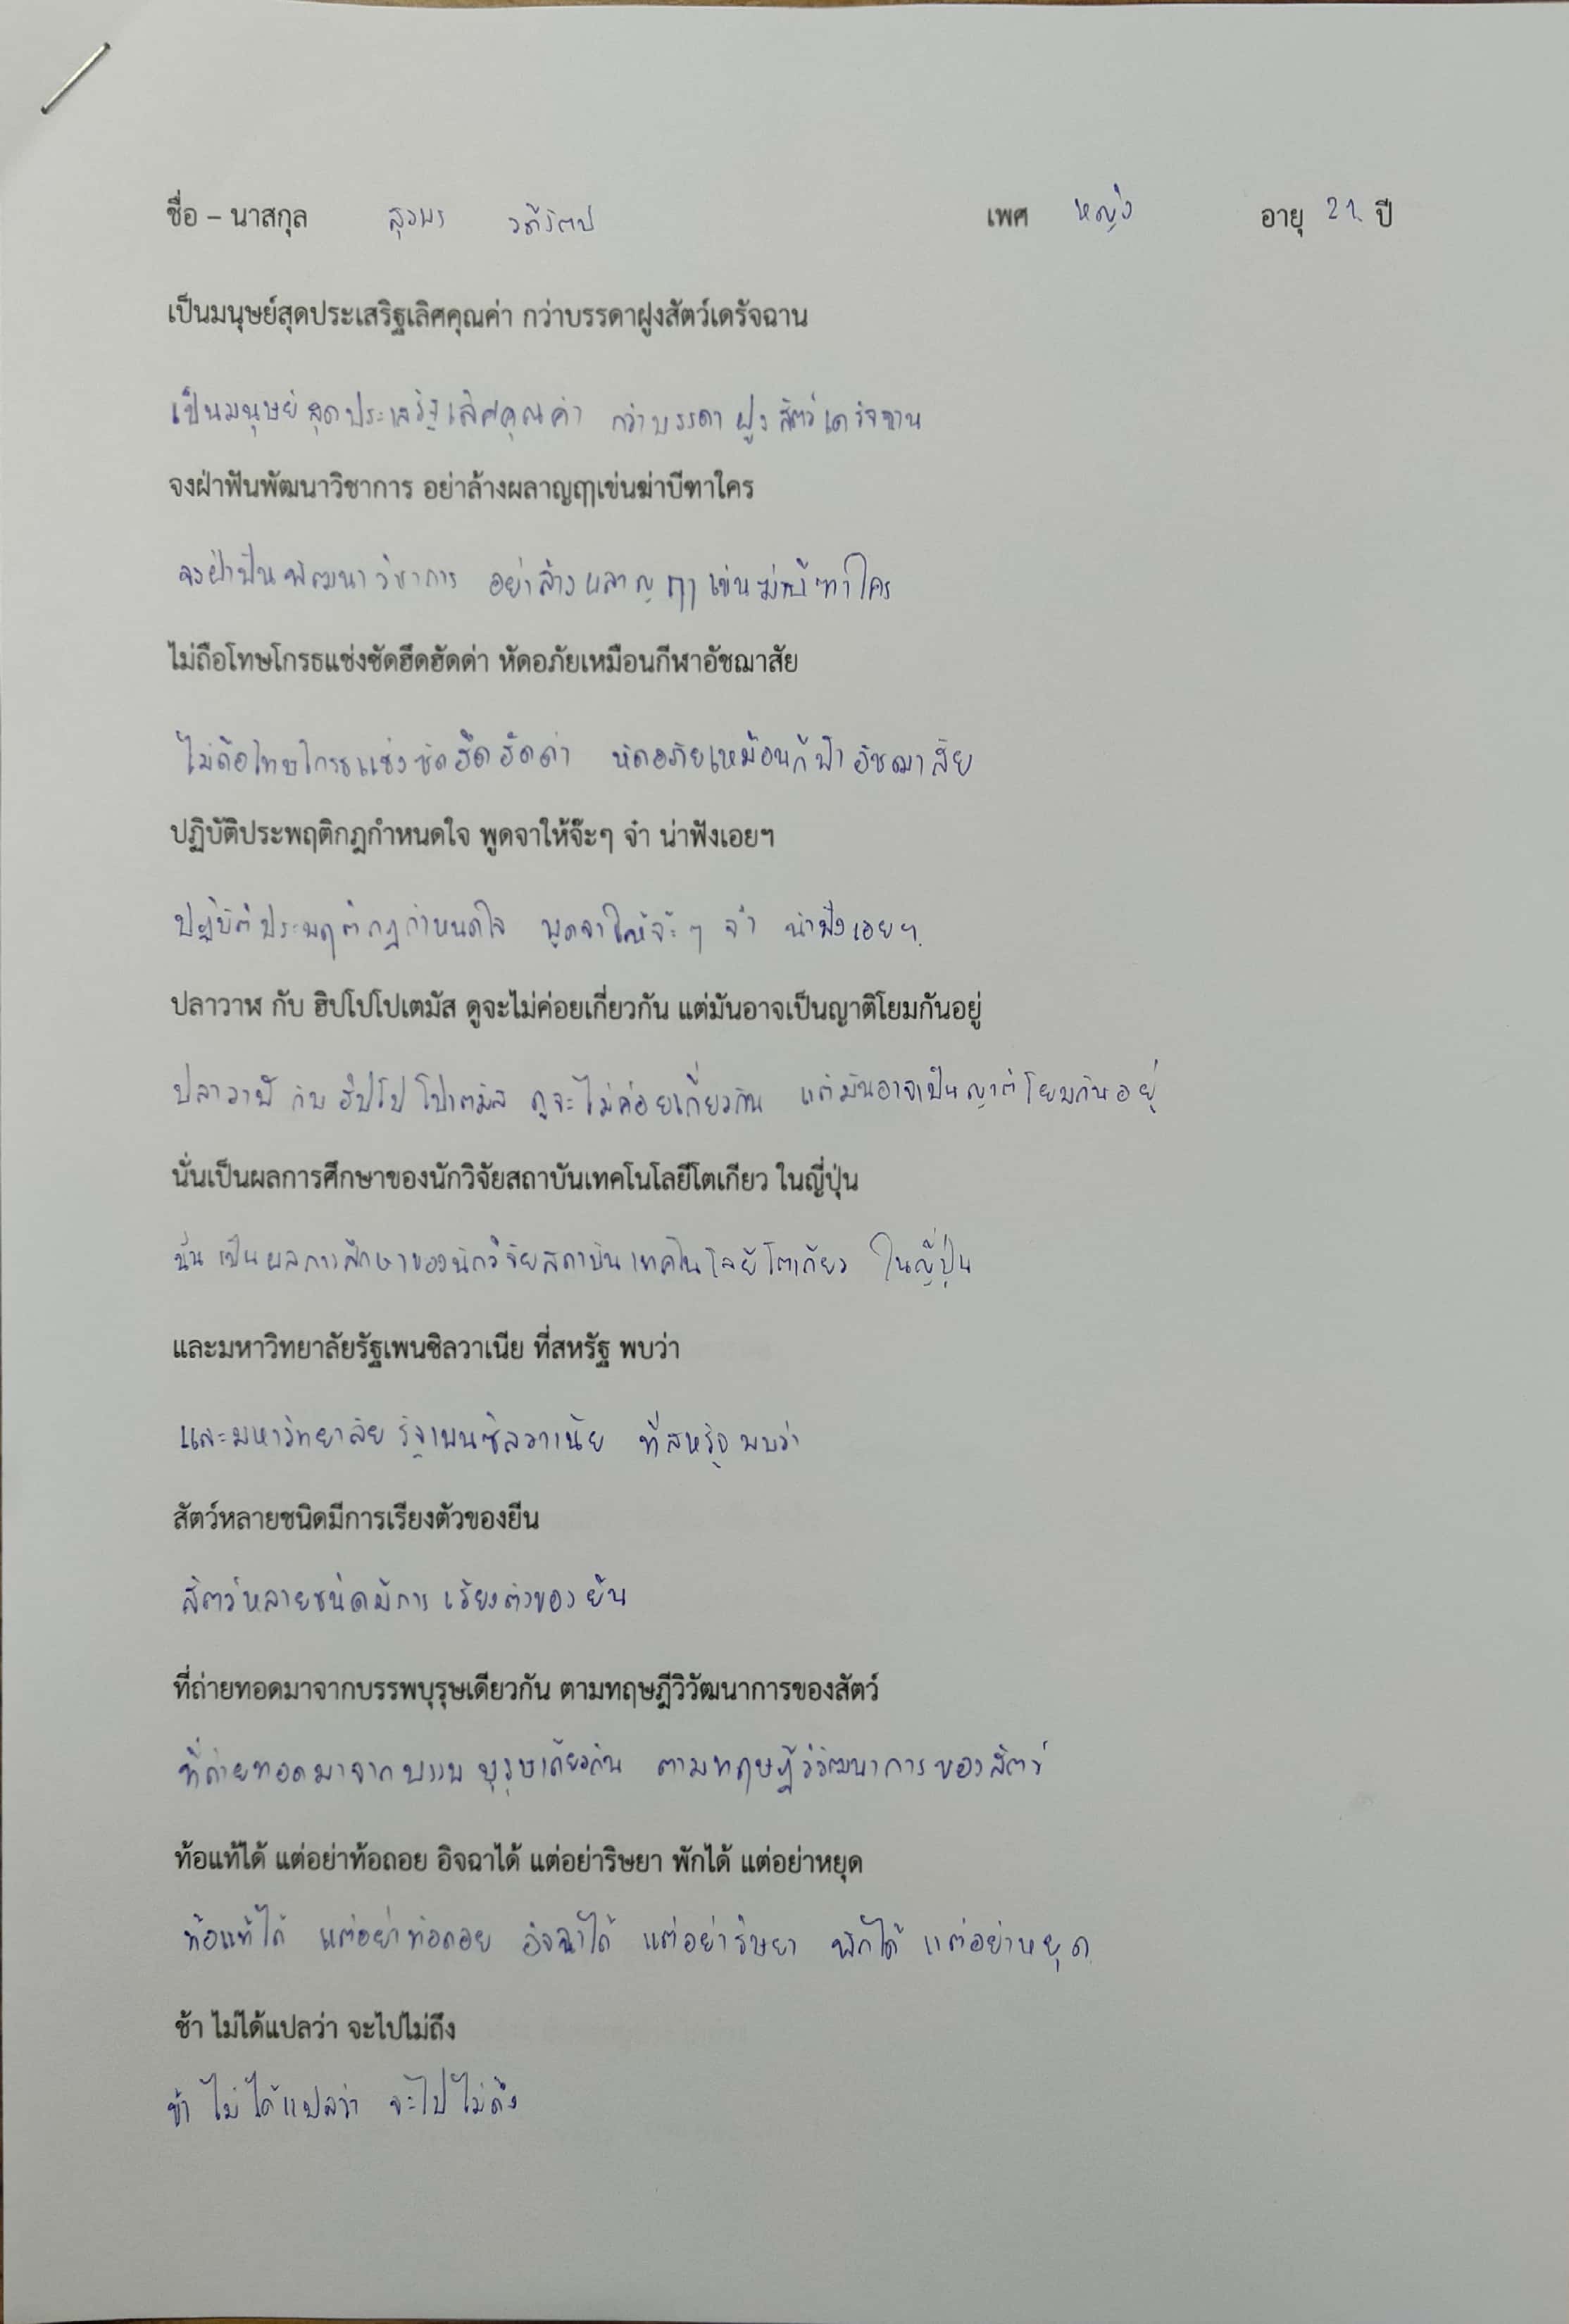 ชื่อ – นาสกุล สุวพร เพศ หญิง อายุ 21 ปี
เป็นมนุษย์สุดประเสริฐเลิศคุณค่า กว่าบรรดาฝูงสัตว์เดรัจฉาน
เป็นมนุษย์สุดประเสริฐเลิศคุณค่า กว่าบรรดาฝูงสัตว์เดรัจฉาน
จงฝ่าฟันพัฒนาวิชาการ อย่าล้างผลาญฤๅเข่นฆ่าบีฑาใคร
จงฝ่าฟันพัฒนาวิชาการ อย่าล้างผลาญฤๅเข่นฆ่าบีฑาใคร
ไม่ถือโทษโกรธแช่งซัดฮึดฮัดด่า หัดอภัยเหมือนกีฬาอัชฌาสัย
ไม่ถือโทษโกรธแช่งซัดฮึดฮัดด่า หัดอภัยเหมือนกีฬาอัชฌาสัย
ปฏิบัติประพฤติกฎกำหนดใจ พูดจาให้จ๊ะๆ จ๋า น่าฟังเอยฯ
ปฏิบัติประพฤติกฎกำหนดใจ พูดจาให้จ๊ะๆ จ๋า น่าฟังเอยฯ
ปลาวาฬ กับ ฮิปโปโปเตมัส ดูจะไม่ค่อยเกี่ยวกัน แต่มันอาจเป็นญาติโยมกันอยู่
ปลาวาฬ กับ ฮิปโปโปเตมัส ดูจะไม่ค่อยเกี่ยวกัน แต่มันอาจเป็นญาติโยมกันอยู่
นั่นเป็นผลการศึกษาของนักวิจัยสถาบันเทคโนโลยีโตเกียว ในญี่ปุ่น
นั่นเป็นผลการศึกษาของนักวิจัยสถาบันเทคโนโลยีโตเกียว ในญี่ปุ่น
และมหาวิทยาลัยรัฐเพนซิลวาเนีย ที่สหรัฐ พบว่า
และมหาวิทยาลัยรัฐเพนซิลวาเนีย ที่สหรัฐ พบว่า
สัตว์หลายชนิดมีการเรียงตัวของยีน
สัตว์หลายชนิดมีการเรียงตัวของยีน
ที่ถ่ายทอดมาจากบรรพบุรุษเดียวกัน ตามทฤษฎีวิวัฒนาการของสัตว์
ที่ถ่ายทอดมาจากบรรพบุรุษเดียวกัน ตามทฤษฎีวิวัฒนาการของสัตว์
ท้อแท้ได้ แต่อย่าท้อถอย อิจฉาได้ แต่อย่าริษยา พักได้ แต่อย่าหยุด
ท้อแท้ได้ แต่อย่าท้อถอย อิจฉาได้ แต่อย่าริษยา พักได้ แต่อย่าหยุด
ช้า ไม่ได้แปลว่า จะไปไม่ถึง
ช้า ไม่ได้แปลว่า จะไปไม่ถึง